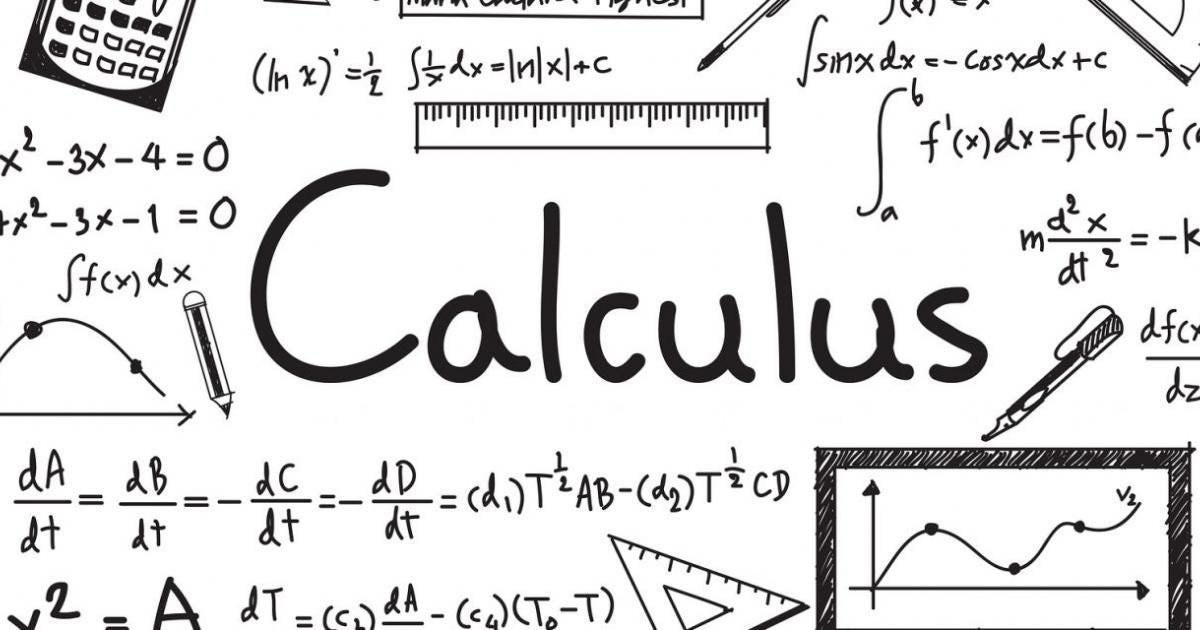 (ln x)' = 1/2 ∫1/x dx = ln|x| + c
∫sinx dx = - cosxdx + c
∫_a^b f'(x) dx = f(b) - f
x² - 3x - 4 = 0
x² - 3x - 1 = 0
∫f(x) dx
Calculus
m d²x/dt² = -k
df(x
dz
dA/dt = dB/dt = - dC/dt = - dD/dt = (d₁)T^½ AB - (d₂)T^½ CD
V₂
² = A
dT = (c₂) dA - (c₄)(T₀ - T)